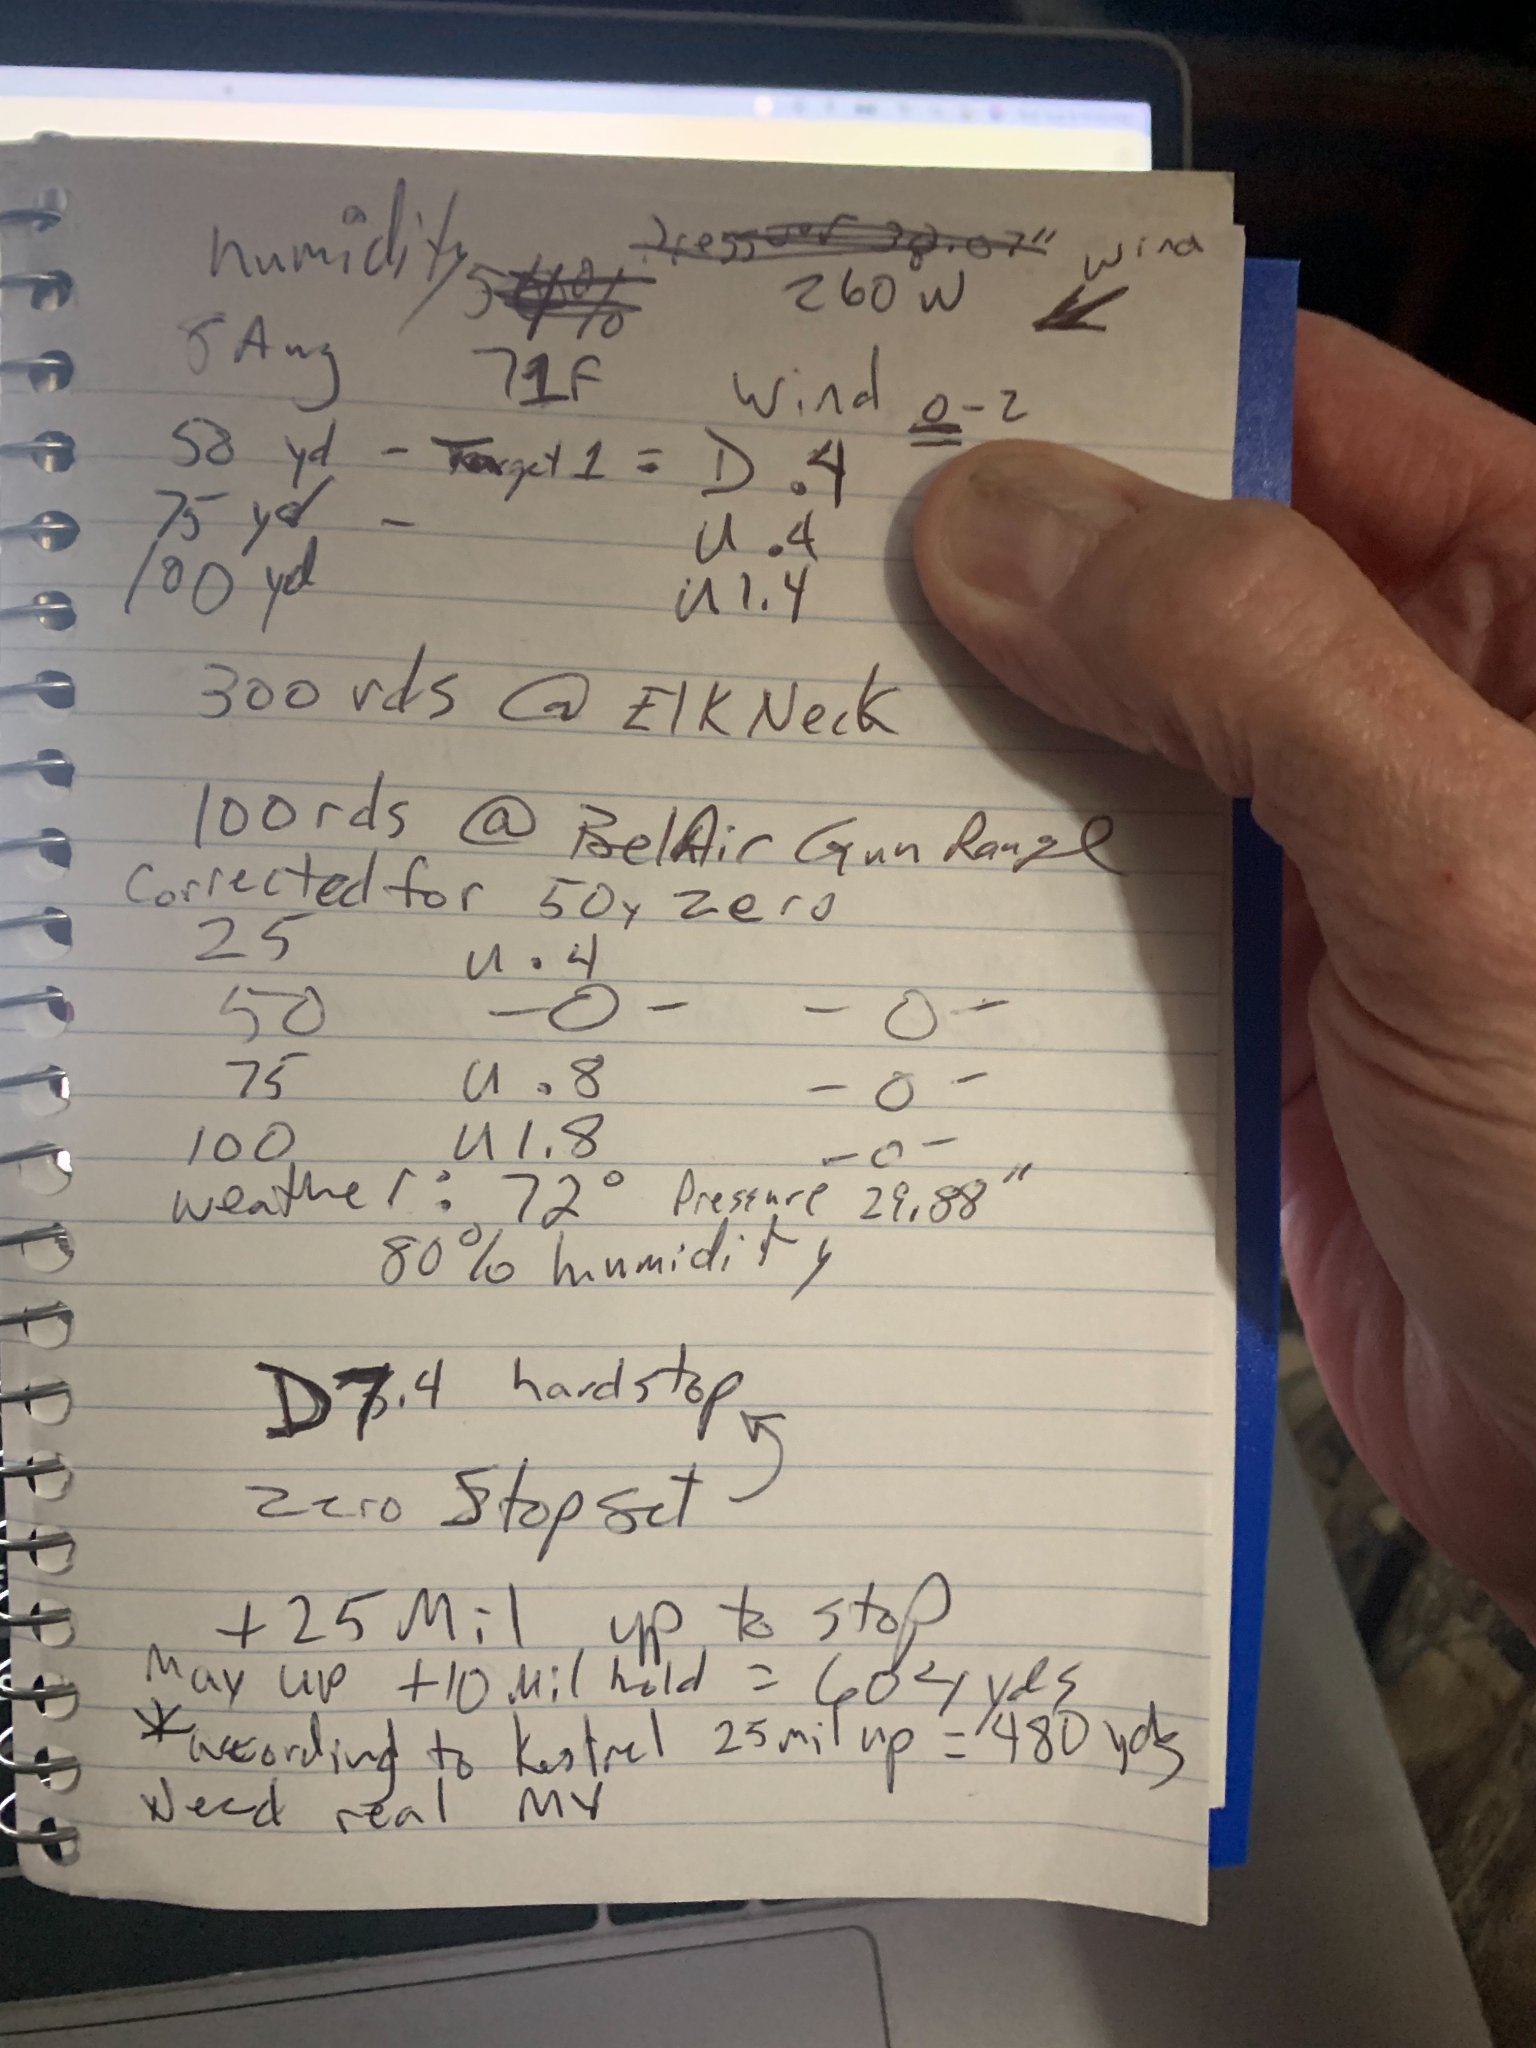 humidity
260 W Wind
8 Aug 71F Wind 0-2
50 yd - Target 1 = D .4
75 yd - U .4
100 yd U 1.4
300 rds @ Elk Neck
100 rds @ BelAir Gun Range
Corrected for 50y zero
25 U .4
50 -0- -0-
75 U .8 -0-
100 U 1.8 -0-
weather: 72° Pressure 29.88"
80% humidity
D7.4 hardstop
zero Stop set
+25 Mil up to stop
May up +10 Mil hold = 604 yds
*according to Kestrel 25 mil up = 480 yds
Need real MV